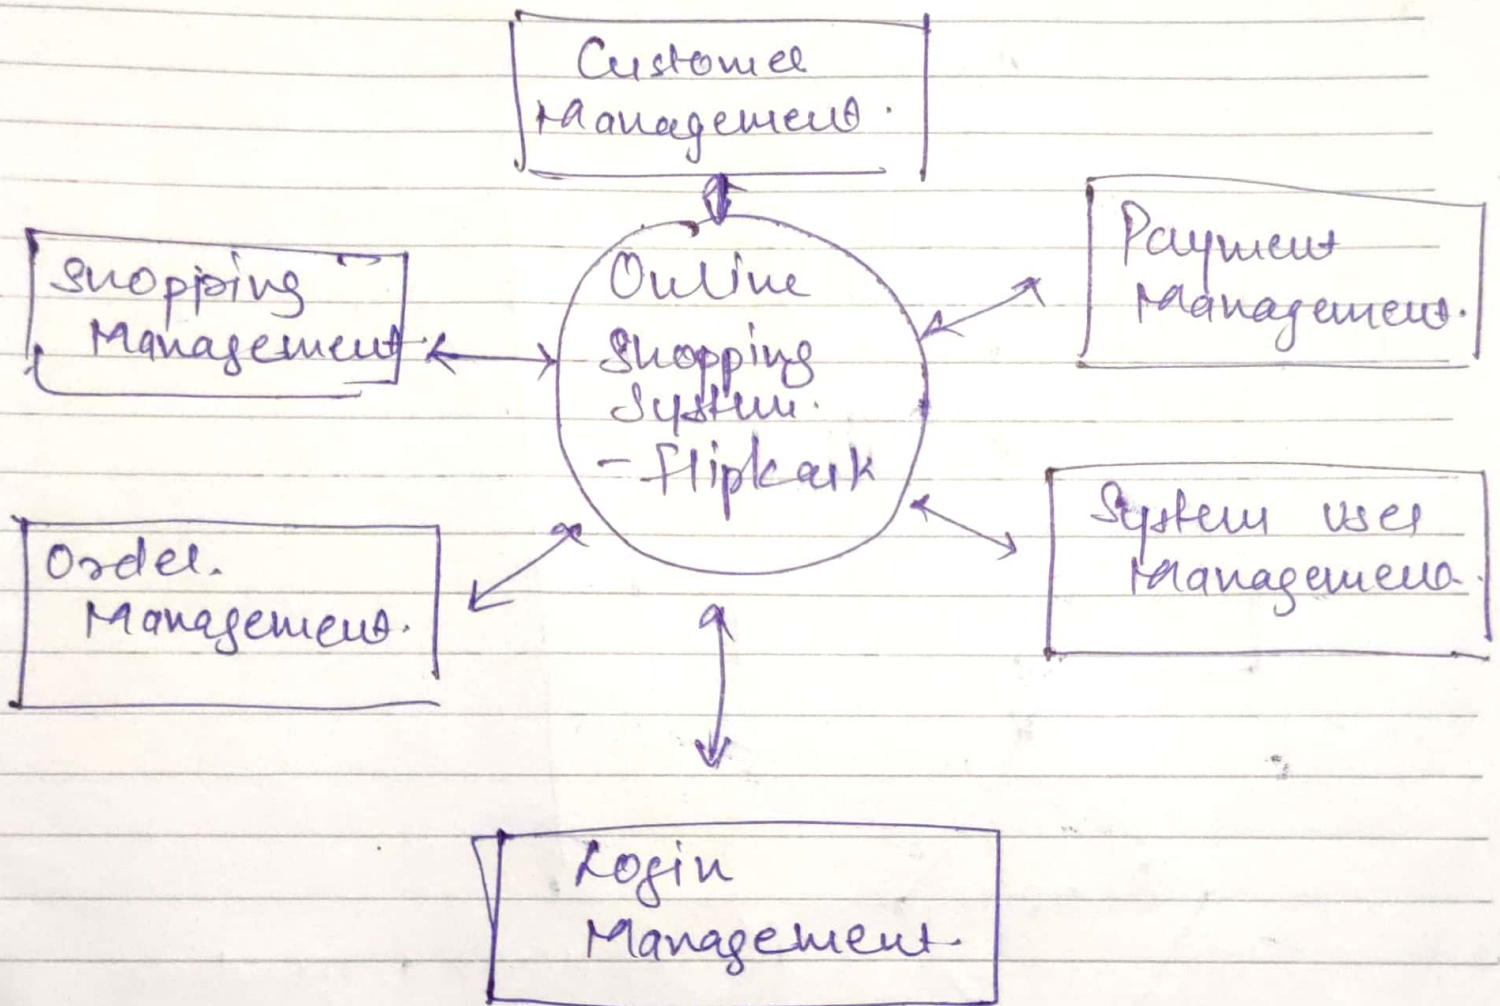 Customer
Management.
Shopping
Management.
Online
Shopping
System.
- Flipkart
Payment
Management.
Order.
Management.
System user
Management.
Login
Management.